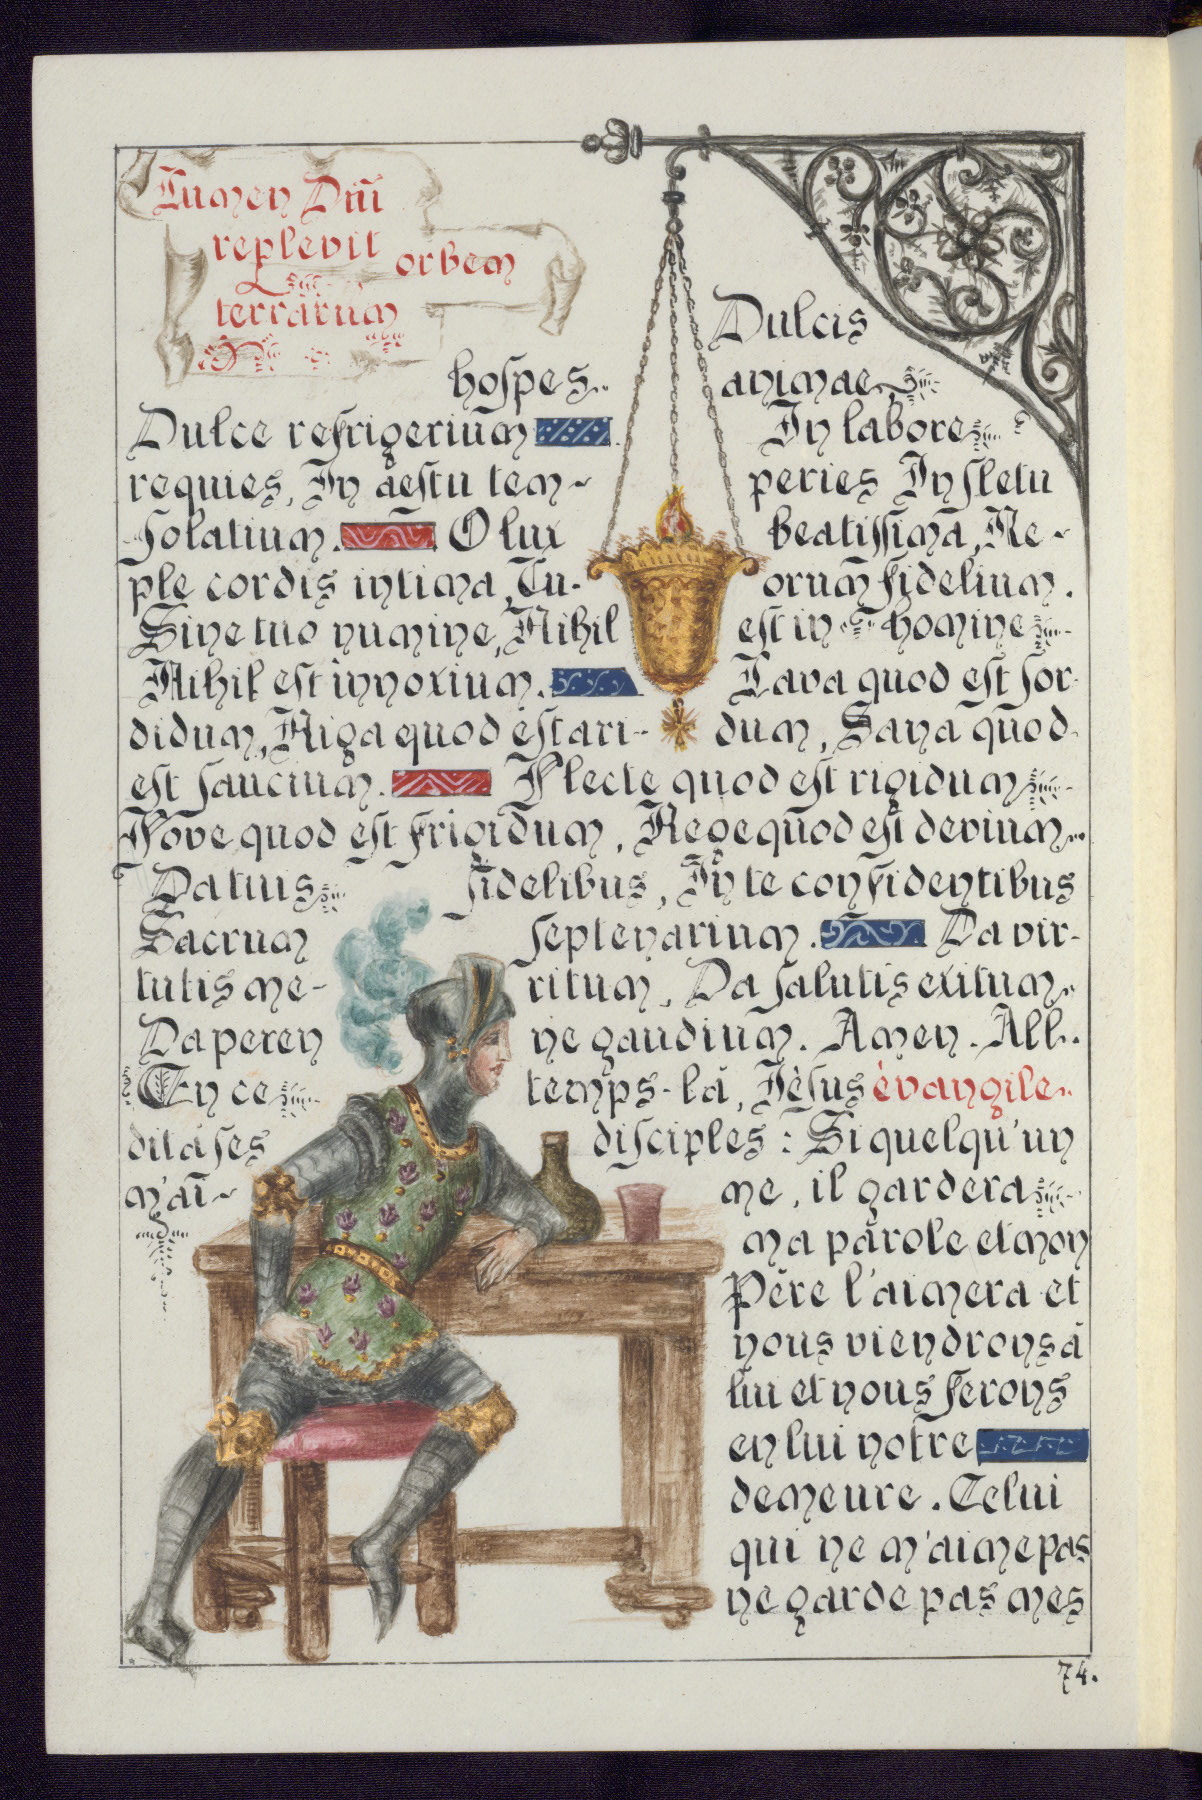 Lumen Dni
replevit orbem
terrarum
Dulcis
hospes animae,
Dulce refrigerium In labore
requies, In aestu temperies In fletu
Solatium. O lux beatissima, Re-
ple cordis intima, Tuorum fidelium.
Sine tuo numine, Nihil est in homine
Nihil est innoxium. Lava quod est sor-
didum, Riga quod est ari- dum, Sana quod
est saucium. Flecte quod est rigidum
Fove quod est frigidum, Rege quod est devium
Da tuis fidelibus, In te confidentibus
Sacrum septenarium. Da vir-
tutis me- ritum, Da salutis exitum
Da peren ne gaudium. Amen. All.
En ce temps-là, Jèsus èvangile
dit à ses disciples: Si quelqu'un
m'ai- me, il gardera
ma parole et mon
Père l'aimera et
nous viendrons à
lui et nous ferons
en lui notre
demeure. Celui
qui ne m'aime pas
ne garde pas mes
74.